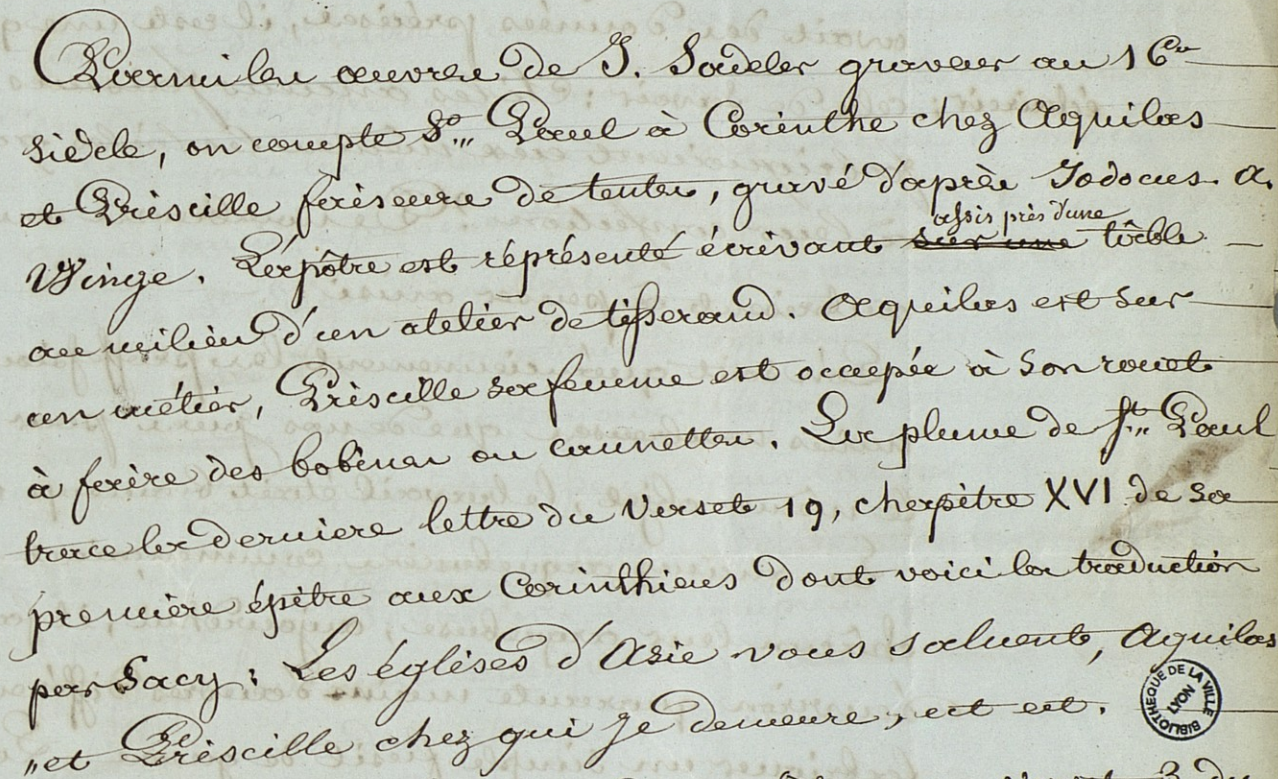 Parmi les œuvres de J. Sadeler graveur au 16e
siècle, on compte St. Paul à Corinthe chez Aquilas
et Priscille faiseurs de tentes, gravé d'après Jodocus a.
assis près d'une
Winge. L'apôtre est réprésenté écrivant sur une table
au milieu d'un atelier de tisserand. Aquilas est sur
un métier, Priscille sa femme est occupée à son rouet
à faire des bobines ou cannettes. La plume de St. Paul
trace la derniere lettre du verset 19, chapitre XVI de sa
première épitre aux Corinthiens dont voici la traduction
par Sacy : Les églises d'Asie vous saluent, Aquilas
„et Priscille chez qui je demeure, ect ect.
BIBLIOTHEQUE DE LA VILLE
LYON